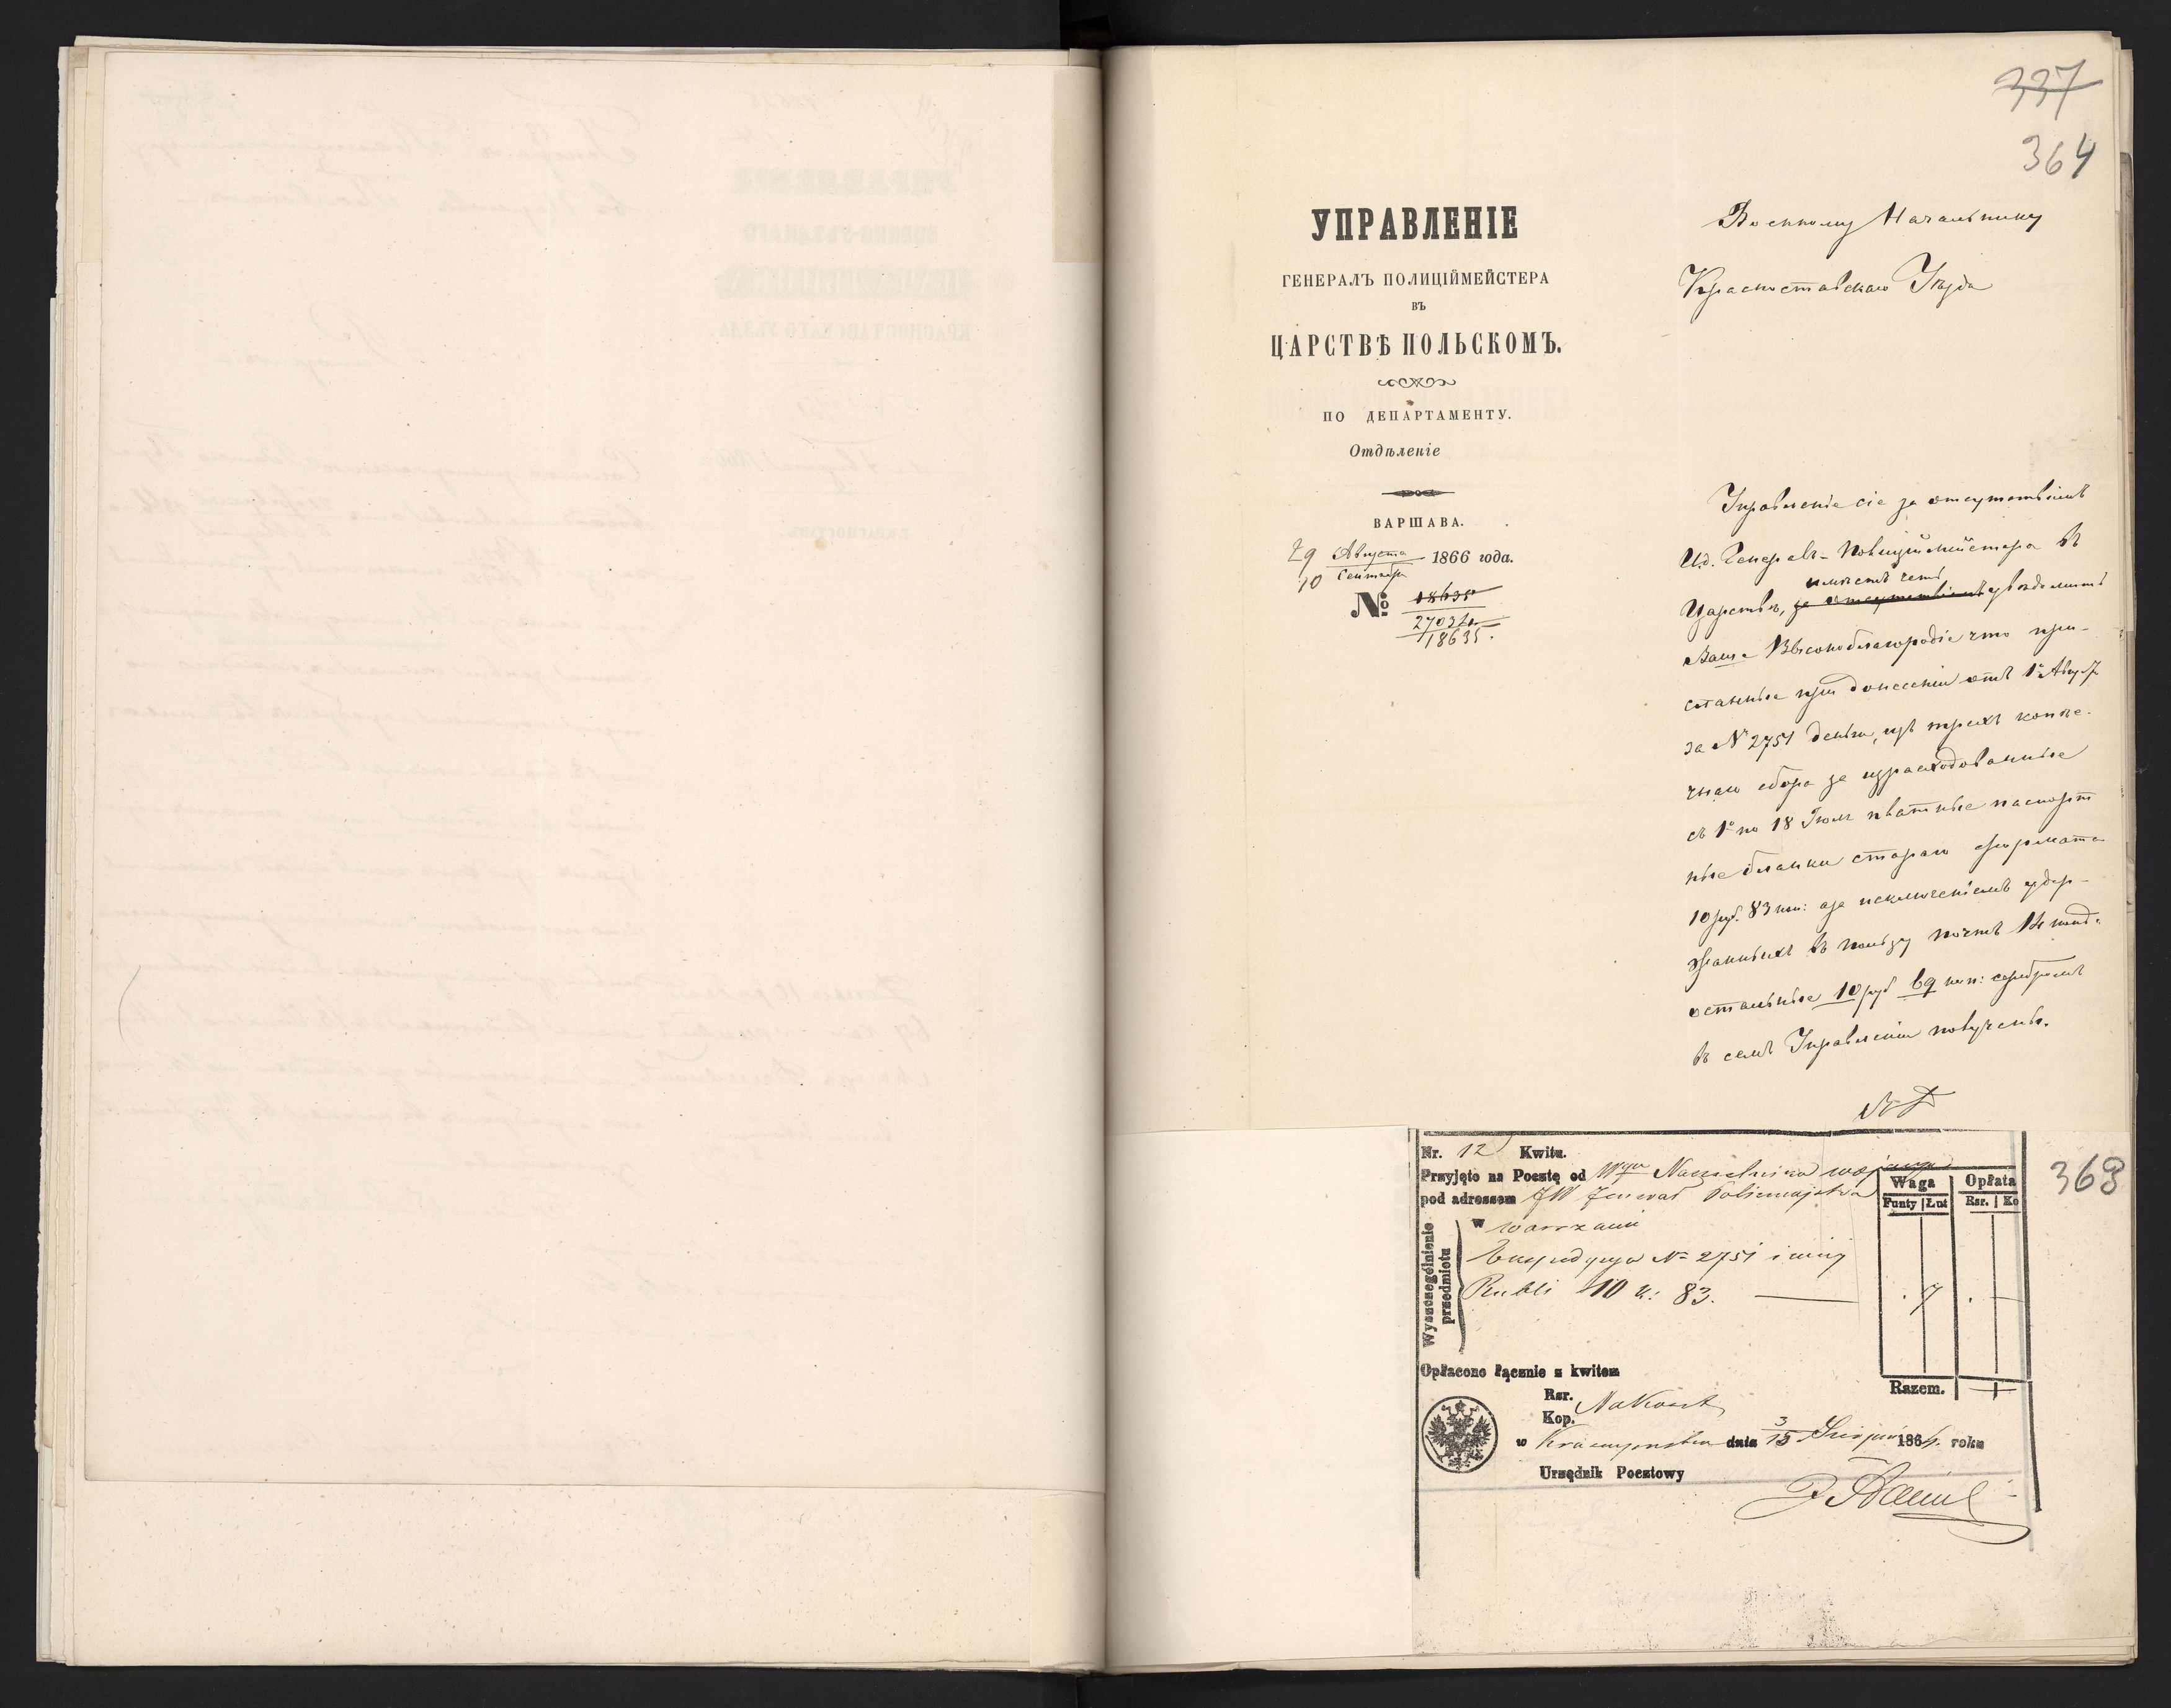 337
364
УПРАВЛЕНІЕ
ГЕНЕРАЛЪ ПОЛИЦІЙМЕЙСТЕРА
ВЪ
ЦАРСТВѢ ПОЛЬСКОМЪ.
ПО ДЕПАРТАМЕНТУ.
Отдѣленіе
ВАРШАВА.
29 Августа
10 Сентября 1866 года.
№ 18635
27032
18635.
Военному Начальнику
Красноставскаго Уѣзда
Управленіе сіе за отсутствіемъ
И.д. Генералъ-Полиціймейстера въ
имѣетъ честь
Царствѣ, за отсутствіемъ увѣдомить
Ваше Высокоблагородіе что при-
сланные при донесеніи отъ 1го Авгу.
за № 2751 деньги, изъ трехъ копѣе-
чнаго сбора за израсходованные
съ 1го по 18 Іюля платные паспорт
ные бланки стараго формата
10 руб. 83 коп: а за исключеніемъ удер-
жанныхъ въ пользу почтъ 14 коп.
остальные 10 руб 69 коп: серебромъ
въ семъ Управленіи получены.
Nr. 12 Kwitu.
Przyjęto na Pocztę od Wgo Naczelnika wojennego
pod adressem JW Jenerał Policmajstra
w Warszawie
Wyszczególnienie
przedmiotu
Expedycya № 2751 i w niej
Rubli 10 k: 83.
Waga
Opłata
Funty | Łut
Rsr. | Ko
7
Razem.
368
Opłacono łącznie z kwitem
Rsr.
Kop.
w Krasnymstawie dnia 3/15 Sierpnia 1866 roku
Urzędnik Pocztowy